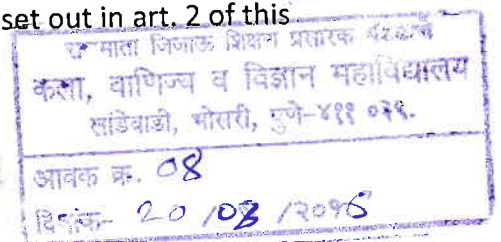 set out in art. 2 of this
माता जिजाऊ शिक्षण प्रसारक
कला, वाणिज्य व विज्ञान महाविद्यालय
लांडेवाडी, भोसरी, पुणे-४११ ०३९.
आवक क्र. 08
दिनांक- 20 /08 /2016